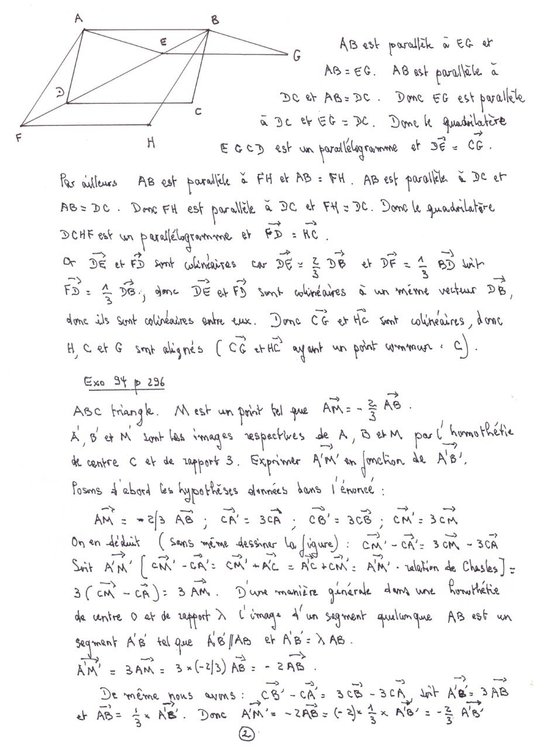 A
B
E
G
D
C
F
H
AB est parallèle à EG et
AB = EG. AB est parallèle à
DC et AB = DC. Donc EG est parallèle
à DC et EG = DC. Donc le quadrilatère
EGCD est un parallélogramme et D͞E⃗ = CG⃗.
Par ailleurs AB est parallèle à FH et AB = FH. AB est parallèle à DC et
AB = DC. Donc FH est parallèle à DC et FH = DC. Donc le quadrilatère
DCHF est un parallélogramme et FD⃗ = HC⃗.
Or DE⃗ et FD⃗ sont colinéaires car DE⃗ = 2/3 DB⃗ et DF⃗ = 1/3 BD⃗ soit
FD⃗ = 1/3 DB⃗, donc DE⃗ et FD⃗ sont colinéaires à un même vecteur DB⃗,
donc ils sont colinéaires entre eux. Donc CG⃗ et HC⃗ sont colinéaires, donc
H, C et G sont alignés (CG⃗ et HC⃗ ayant un point commun : C).
Exo 94 p 296
ABC triangle. M est un point tel que AM⃗ = -2/3 AB⃗.
A', B' et M' sont les images respectives de A, B et M par l'homothétie
de centre C et de rapport 3. Exprimer A'M'⃗ en fonction de A'B'⃗.
Posons d'abord les hypothèses données dans l'énoncé :
AM⃗ = -2/3 AB⃗ ; CA'⃗ = 3CA⃗ ; CB'⃗ = 3CB⃗ ; CM'⃗ = 3CM⃗
On en déduit (sans même dessiner la figure) : CM'⃗ - CA'⃗ = 3CM⃗ - 3CA⃗
Soit A'M'⃗ [CM'⃗ - CA'⃗ = CM'⃗ + A'C⃗ = A'C⃗ + CM'⃗ = A'M'⃗ . relation de Chasles] =
3(CM⃗ - CA⃗) = 3AM⃗. D'une manière générale dans une homothétie
de centre O et de rapport λ l'image d'un segment quelconque AB est un
segment A'B' tel que A'B'//AB et A'B' = λ AB.
A'M'⃗ = 3AM⃗ = 3 × (-2/3) AB⃗ = -2AB⃗.
De même nous avons : CB'⃗ - CA'⃗ = 3CB⃗ - 3CA⃗, soit A'B'⃗ = 3AB⃗
et AB⃗ = 1/3 × A'B'⃗. Donc A'M'⃗ = -2AB⃗ = (-2) × 1/3 × A'B'⃗ = -2/3 A'B'⃗
2